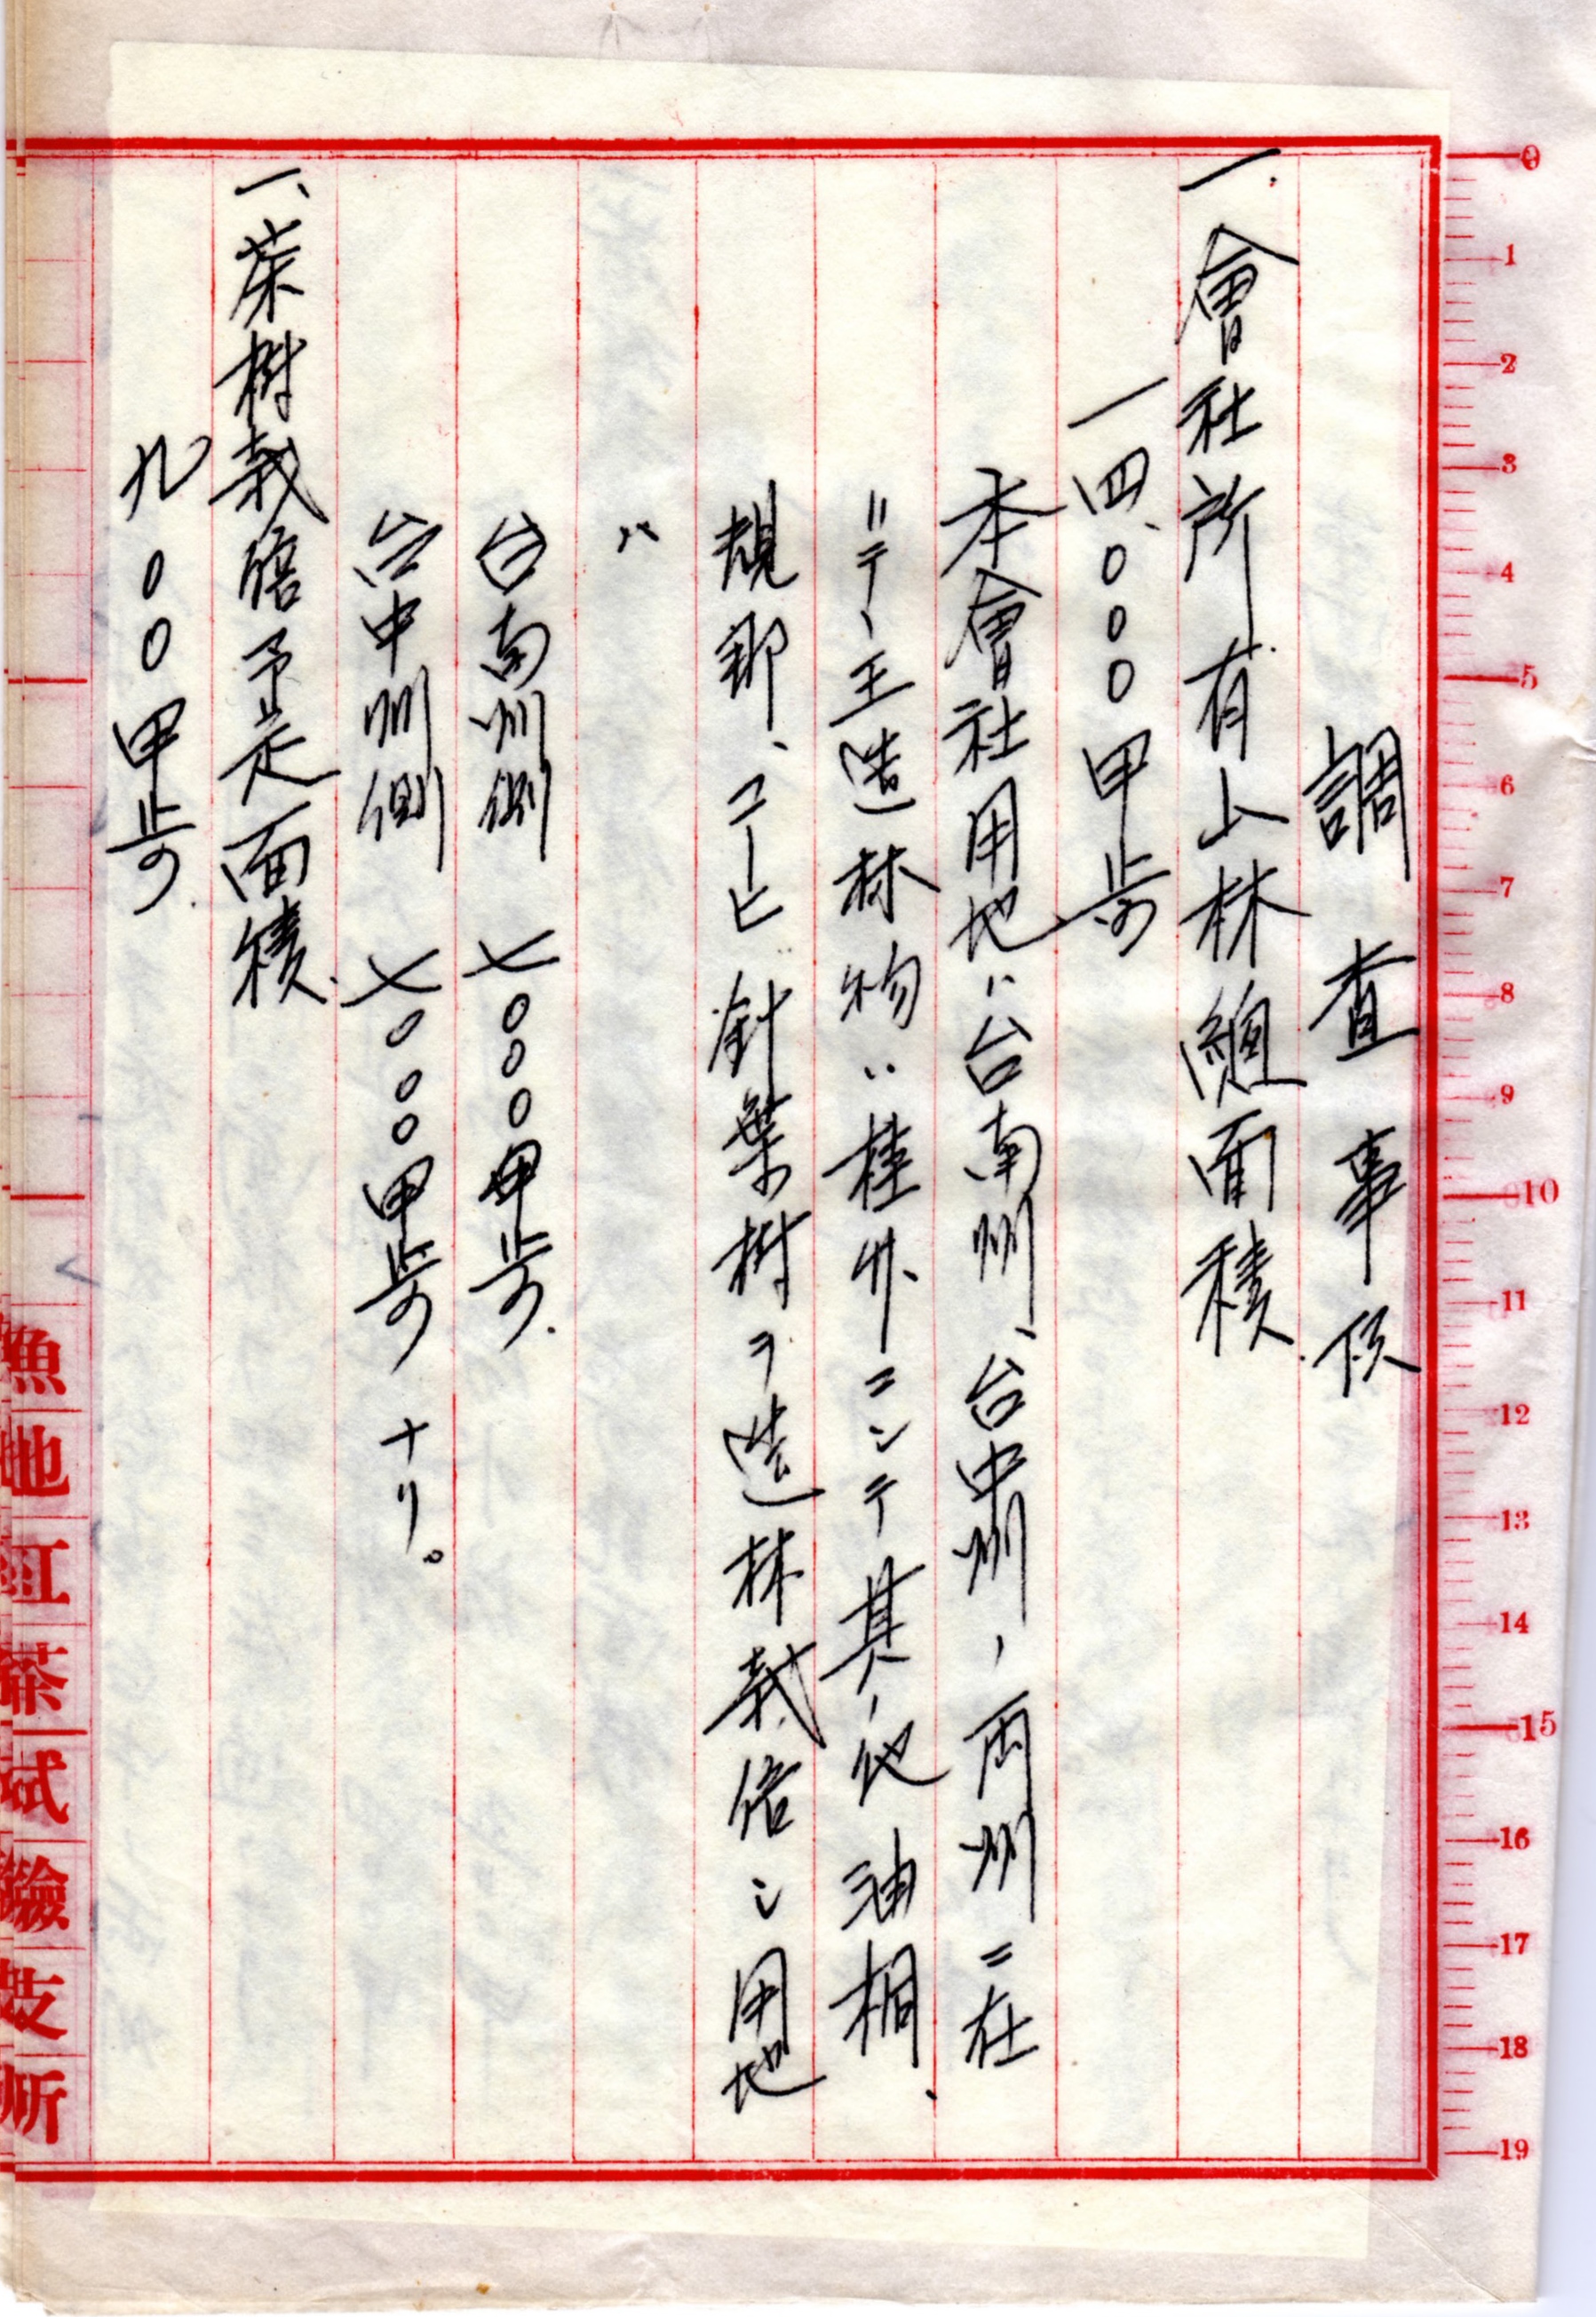 調査事項
一.會社所有山林總面積.
一四、〇〇〇甲歩
本會社用地ハ台南州、台中州ノ両州ニ在
ニテ、主造林物ハ桂竹ニシテ其ノ他油桐、
規那、コーヒー針葉樹ヲ造林栽培シ用地
ハ
台南州側 七〇〇〇甲歩.
台中州側 七〇〇〇甲歩 ナリ。
一、茶樹栽培予定面積.
九〇〇甲歩.
魚池紅茶試驗支所
0
1
2
3
4
5
6
7
8
9
10
11
12
13
14
15
16
17
18
19